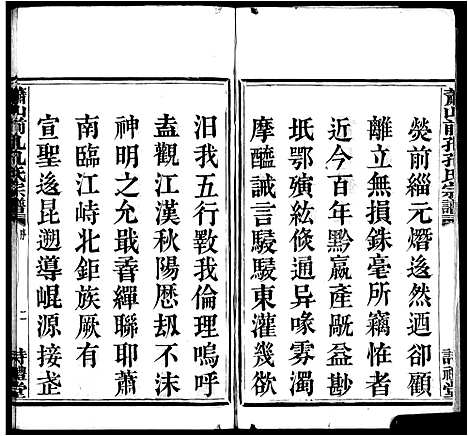 蕭山前孔孔氏宗譜
詩禮堂
熒前緇元熸迻然迺卻顧
離立無損銖毫所竊恠者
近今百年黔嬴產厰益尠
坁鄂殰紘倏通异喙雾濁
摩醯诫言駸駸東灌幾欲
汨我五行斁我倫理嗚呼
盍觀江漢秋陽歷刼不沬
神明之允戢香繩聯耶蕭
南臨江峙北鉅族厥有
宣聖迻昆遡導崐源接
蕭山前孔孔氏宗譜
二
詩禮堂